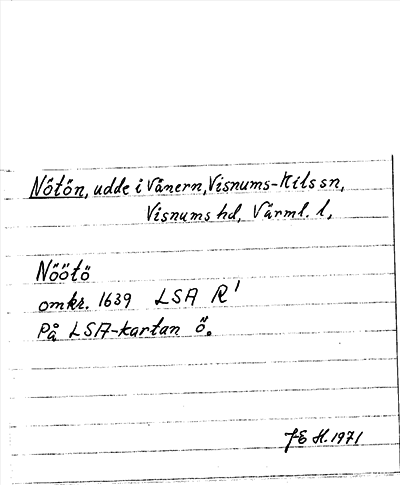 Nötön, udde i Vänern, Visnums-Kils sn,
Visnums hd, Värml. l,
Nöötö
omkr. 1639 LSA R1
På LSA-kartan ö.
JE H. 1971